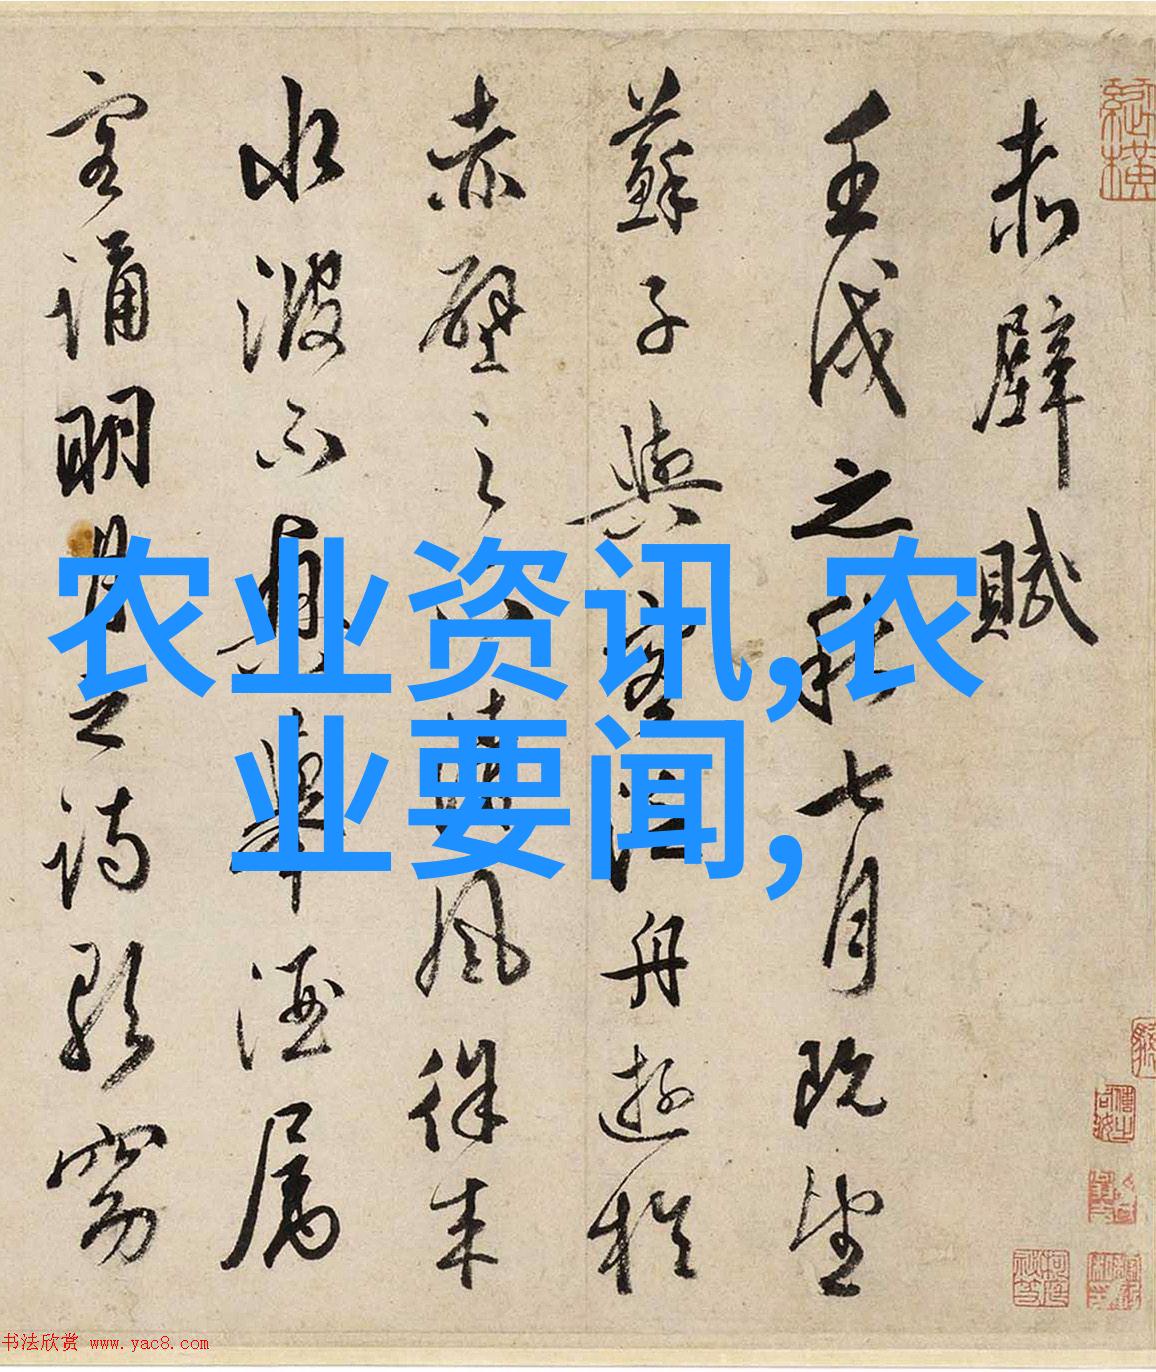 赤壁賦
壬戌之秋七月既望
蘇子與客泛舟遊於
赤壁之下清風徐来
水波不興舉酒属
客誦明月之詩歌窈
农业资讯,农
业要闻,
书法欣赏 www.yac8.com